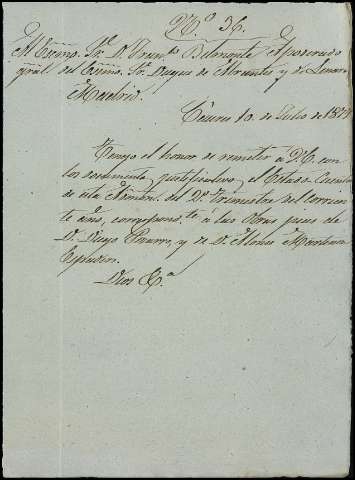 N.º 36.
Al Excmo. Sr. D. Fran.co Belmonte Apoderado
gral. del Excmo. Sr. Duque de Abrantes y de Linares
Madrid.
Cáceres 10 de Julio de 187
Tengo el honor de remitir a V.E. con
los documentos justificativos, el Estado-Cuenta
de esta Admón. del 2º trimestre del corrien
te año, correspond.te a las Obras pias de
D. Diego Pizarro, y de D. Alonso Martinez
Espadero.
Dios &.ª